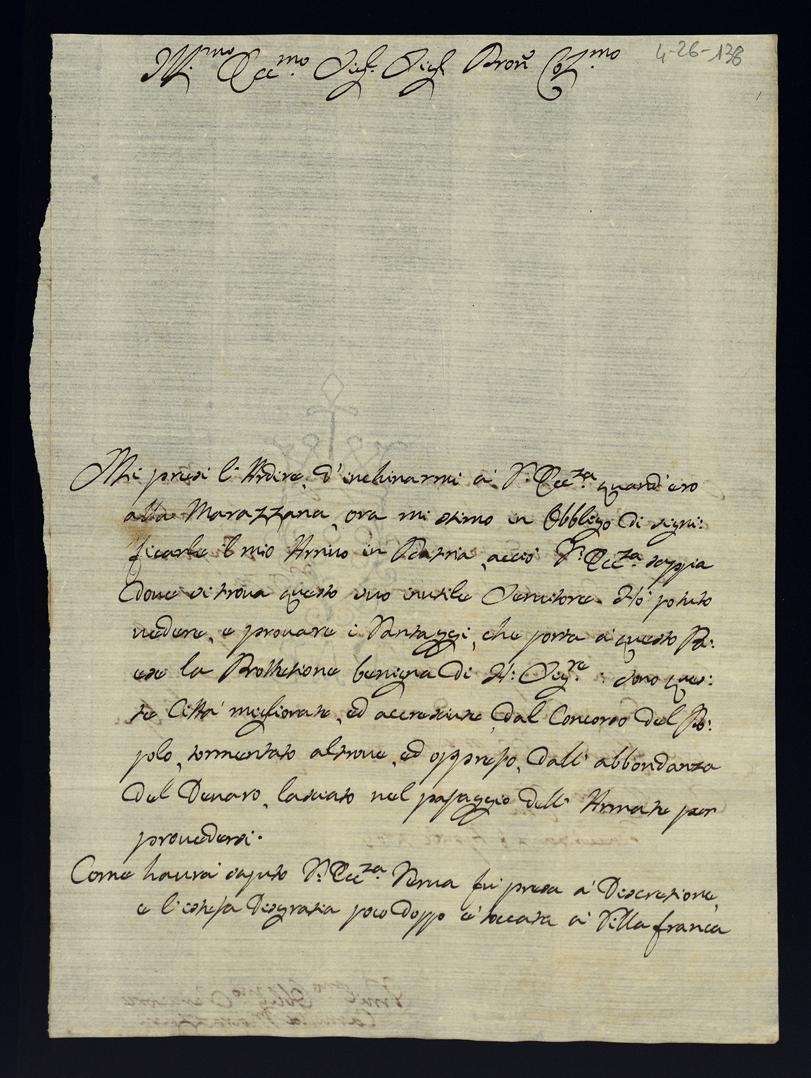 Ill.mo Ecc.mo Sig.r Sig.r Pron Col.mo
4-26-138
Mi presi l'Ardire, d'inchinarmi à V. Ecc.za quand'ero
alla Marazzana, ora mi stimo in Obbligo di signi:
ficarle il mio Arrivo in Patria, acciò V. Ecc.za sappia
dove si trova questo suo inutile Servitore. Hò potuto
vedere, e provare i Vantaggi, che porta à questo Pa:
ese la Protetione benigna di N: Sig.re: sono ques:
te Città migliorate, ed accresciute, dal Concorso del Po:
polo, tormentato altrove, ed oppresso, dall'abbondanza
del Denaro, lasciato nel passaggio dell'Armate per
provedersi.
Come haurà saputo V. Ecc.za Verua fù presa à Discretione,
e l'istessa Disgratia poco doppo è toccata à Villa franca